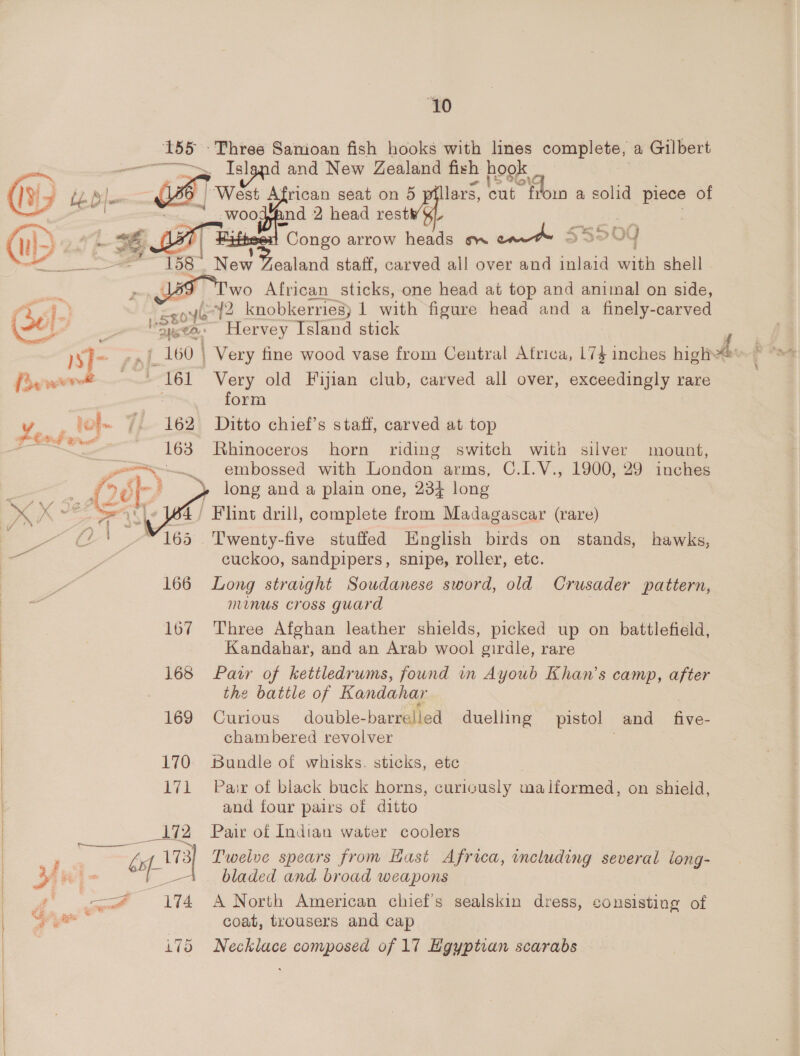 10
155 Three Samoan fish hooks with lines complete, a Gilbert
Island and New Zealand fish hook
West African seat on 5 pillars, cut from a solid piece of
wood and 2 head rests
157 Fifteen Congo arrow heads on
158 New Zealand staff, carved all over and inlaid with shell
159 Two African sticks, one head at top and animal on side,
2 knobkerries, 1 with figure head and a finely-carved
Hervey Island stick
160 Very fine wood vase from Central Africa, 17½ inches high
161 Very old Fijian club, carved all over, exceedingly rare
form
162 Ditto chief's staff, carved at top
163 Rhinoceros horn riding switch with silver mount,
embossed with London arms, C.I.V., 1900, 29 inches
long and a plain one, 23½ long
164 Flint drill, complete from Madagascar (rare)
165 Twenty-five stuffed English birds on stands, hawks,
cuckoo, sandpipers, snipe, roller, etc.
166 Long straight Soudanese sword, old Crusader pattern,
minus cross guard
167 Three Afghan leather shields, picked up on battlefield,
Kandahar, and an Arab wool girdle, rare
168 Pair of kettledrums, found in Ayoub Khan's camp, after
the battle of Kandahar
169 Curious double-barrelled duelling pistol and five-
chambered revolver
170 Bundle of whisks, sticks, etc
171 Pair of black buck horns, curiously malformed, on shield,
and four pairs of ditto
172 Pair of Indian water coolers
173 Twelve spears from East Africa, including several long-
bladed and broad weapons
174 A North American chief's sealskin dress, consisting of
coat, trousers and cap
175 Necklace composed of 17 Egyptian scarabs